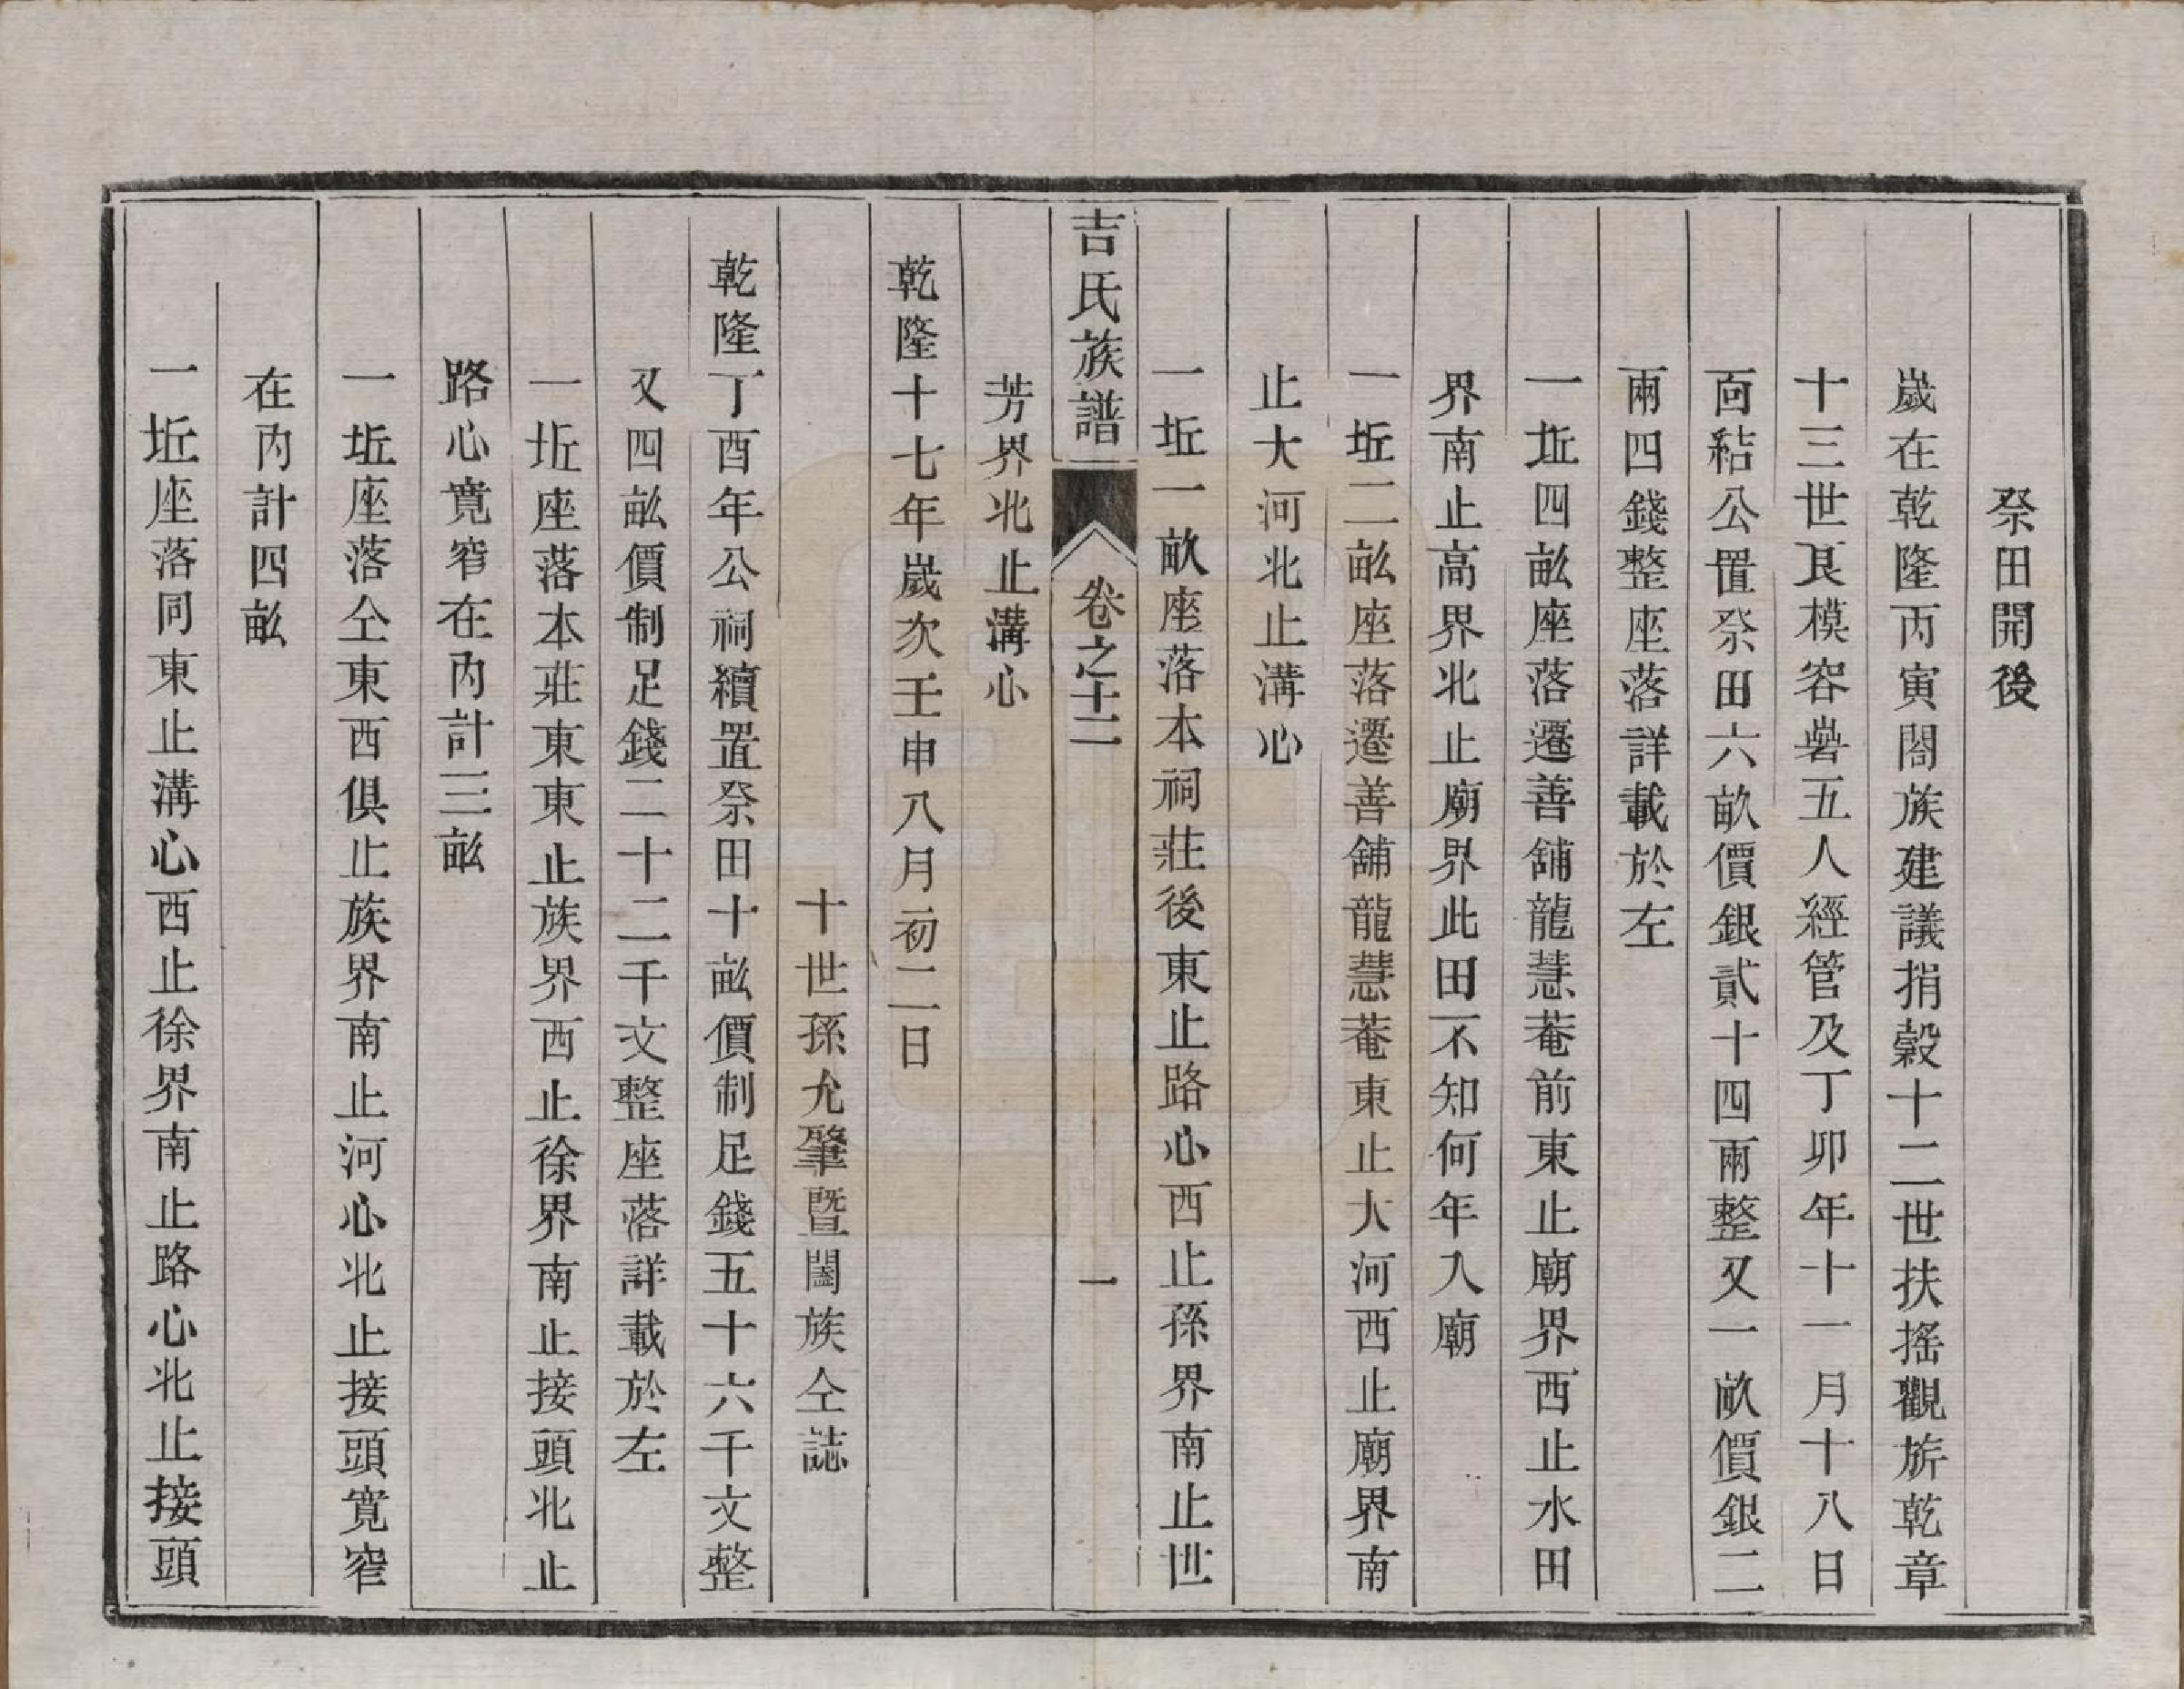 祭田開後
歲在乾隆丙寅閤族建議捐穀十二世扶搖觀旂乾章
十三世艮模容嵒五人經管及丁卯年十一月十八日
面結公置祭田六畝價銀貳十四兩整又一畝價銀二
兩四錢整座落詳載於左
一坵四畝座落遷善舖龍慧菴前東止廟界西止水田
界南止高界北止廟界此田不知何年入廟
一坵二畝座落遷善舖龍慧菴東止大河西止廟界南
止大河北止溝心
一坵一畝座落本祠莊後東止路心西止孫界南止世
吉氏族譜 卷之十二 一
芳界北止溝心
乾隆十七年歲次壬申八月初二日
十世孫允肇暨闔族仝誌
乾隆丁酉年公祠續置祭田十畝價制足錢五十六千文整
又四畝價制足錢二十二千文整座落詳載於左
一坵座落本莊東東止族界西止徐界南止接頭北止
路心寬窄在內計三畝
一坵座落仝東西俱止族界南止河心北止接頭寬窄
在內計四畝
一坵座落同東止溝心西止徐界南止路心北止接頭